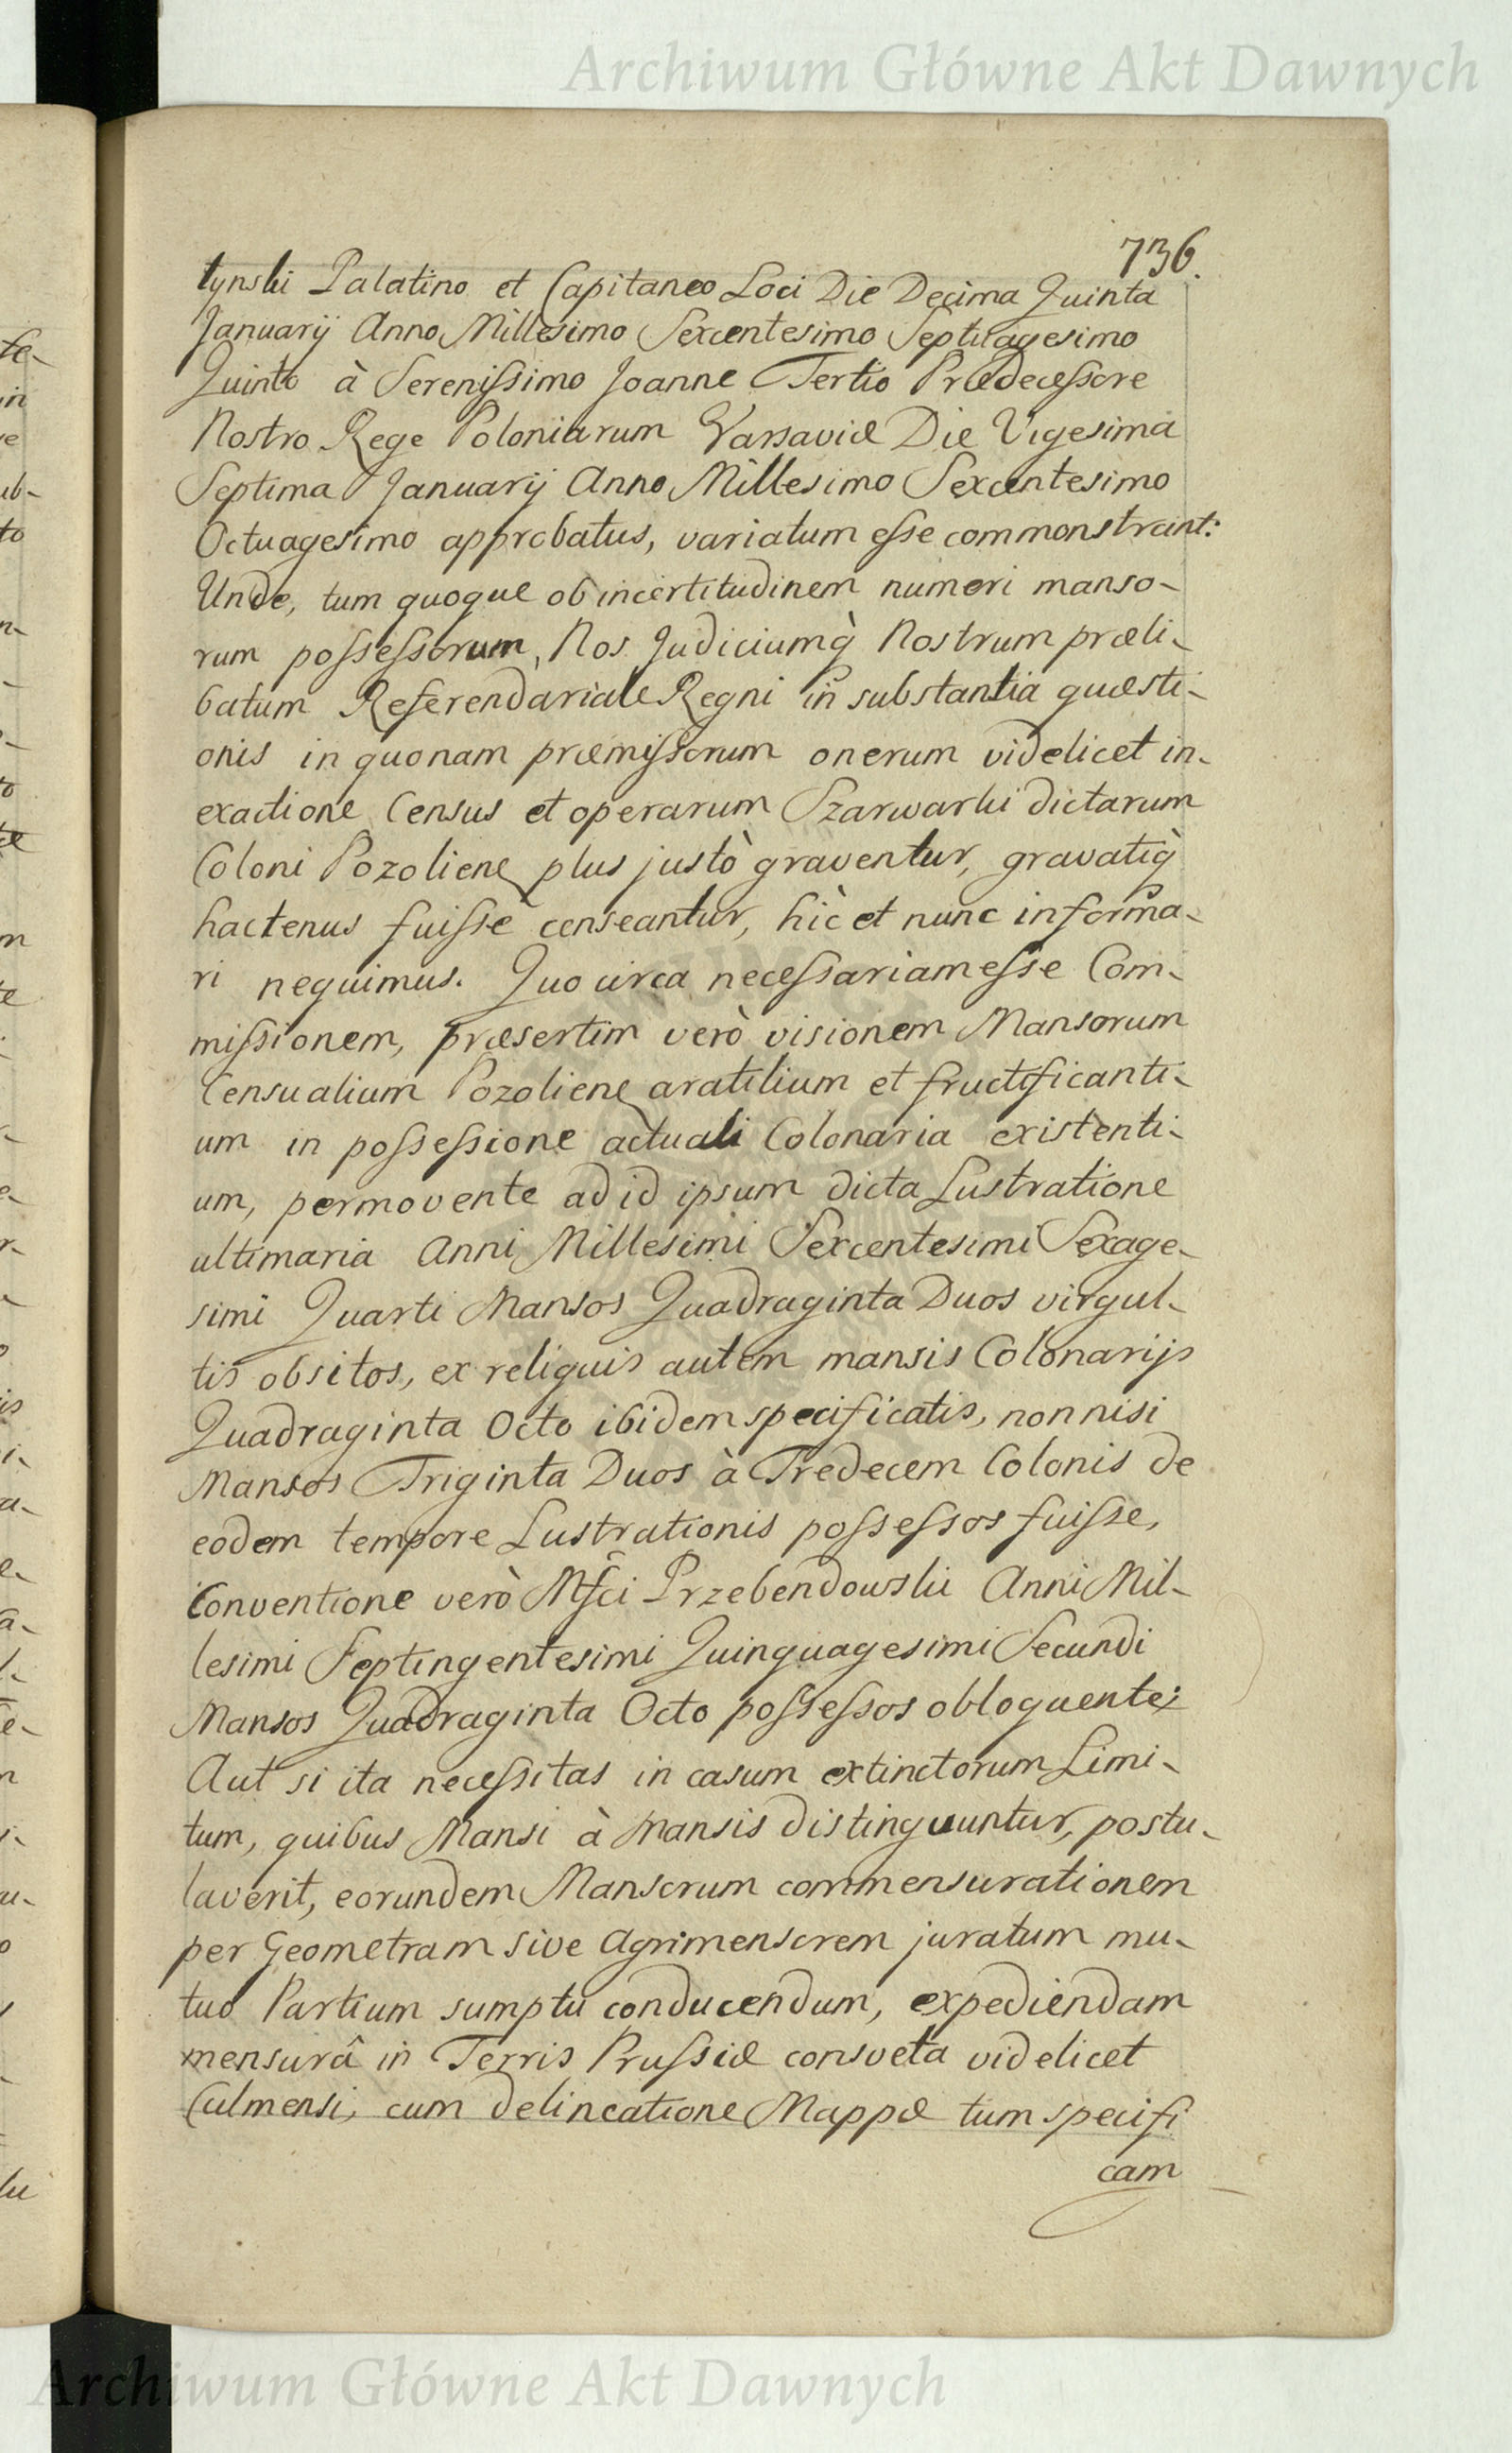 Archiwum Główne Akt Dawnych
736.
tynski Palatino et Capitaneo Loci Die Decima Quinta
Januarij Anno Millesimo Sexcentesimo Septuagesimo
Quinto à Serenissimo Joanne Tertio Prædecessore
Nostro Rege Poloniarum Varsaviæ Die Vigesima
Septima Januarij Anno Millesimo Sexcentesimo
Octuagesimo approbatus, variatum esse commonstrant:
Unde, tum quoque ob incertitudinem numeri manso-
rum possessorum, Nos Judiciumq̀ Nostrum præli-
batum Referendariale Regni in substantia quæsti-
onis in quonam præmissorum onerum videlicet in-
exactione Census et operarum Szarwarki dictarum
Coloni Pozolienę plus justò graventur, gravatiq̀
hactenus fuisse censeantur, hìc et nunc informa-
ri nequimus. Quo circa necessariam esse Com-
missionem, præsertim verò visionem Mansorum
Censualium Pozolienę aratilium et fructificanti-
um in possessione actuali Colonaria existenti-
um, permovente ad id ipsum dicta Lustratione
ultimaria Anni Millesimi Sexcentesimi Sexage-
simi Quarti Mansos Quadraginta Duos virgul-
tis obsitos, ex reliquis autem mansis Colonarijs
Quadraginta Octo ibidem specificatis, non nisi
Mansos Triginta Duos à Tredecem Colonis de
eodem tempore Lustrationis possessos fuisse,
Conventione verò Mfci Przebendowski Anni Mil-
lesimi Septingentesimi Quinquagesimi Secundi
Mansos Quadraginta Octo possessos obloquente;
Aut si ita necessitas in casum extinctorum Limi-
tum, quibus Mansi à Mansis distinguuntur, postu-
laverit, eorundem Mansorum commensurationem
per Geometram sive Agrimensorem juratum mu-
tuo Partium sumptu conducendum, expediendam
mensurâ in Terris Prussiæ consveta videlicet
Culmensi, cum delineatione Mappæ tum specifi
cam
Archiwum Główne Akt Dawnych